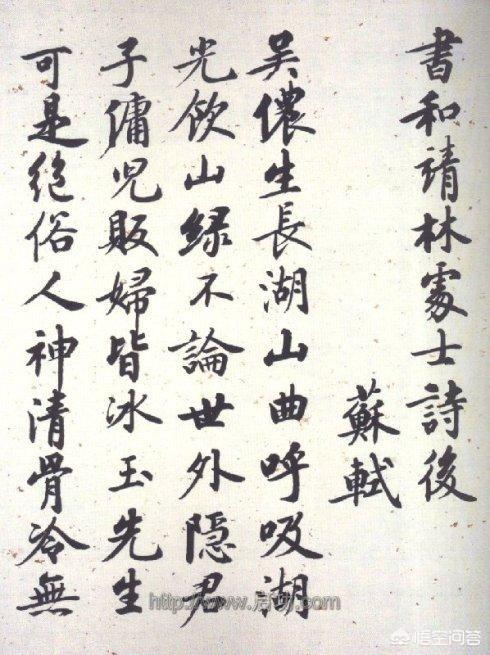 書和靖林處士詩後
蘇軾
吴儂生長湖山曲呼吸湖
光飲山緑不論世外隐君
子傭兒販婦皆冰玉先生
可是絕俗人神清骨冷無
http://www. .com
悟空问答